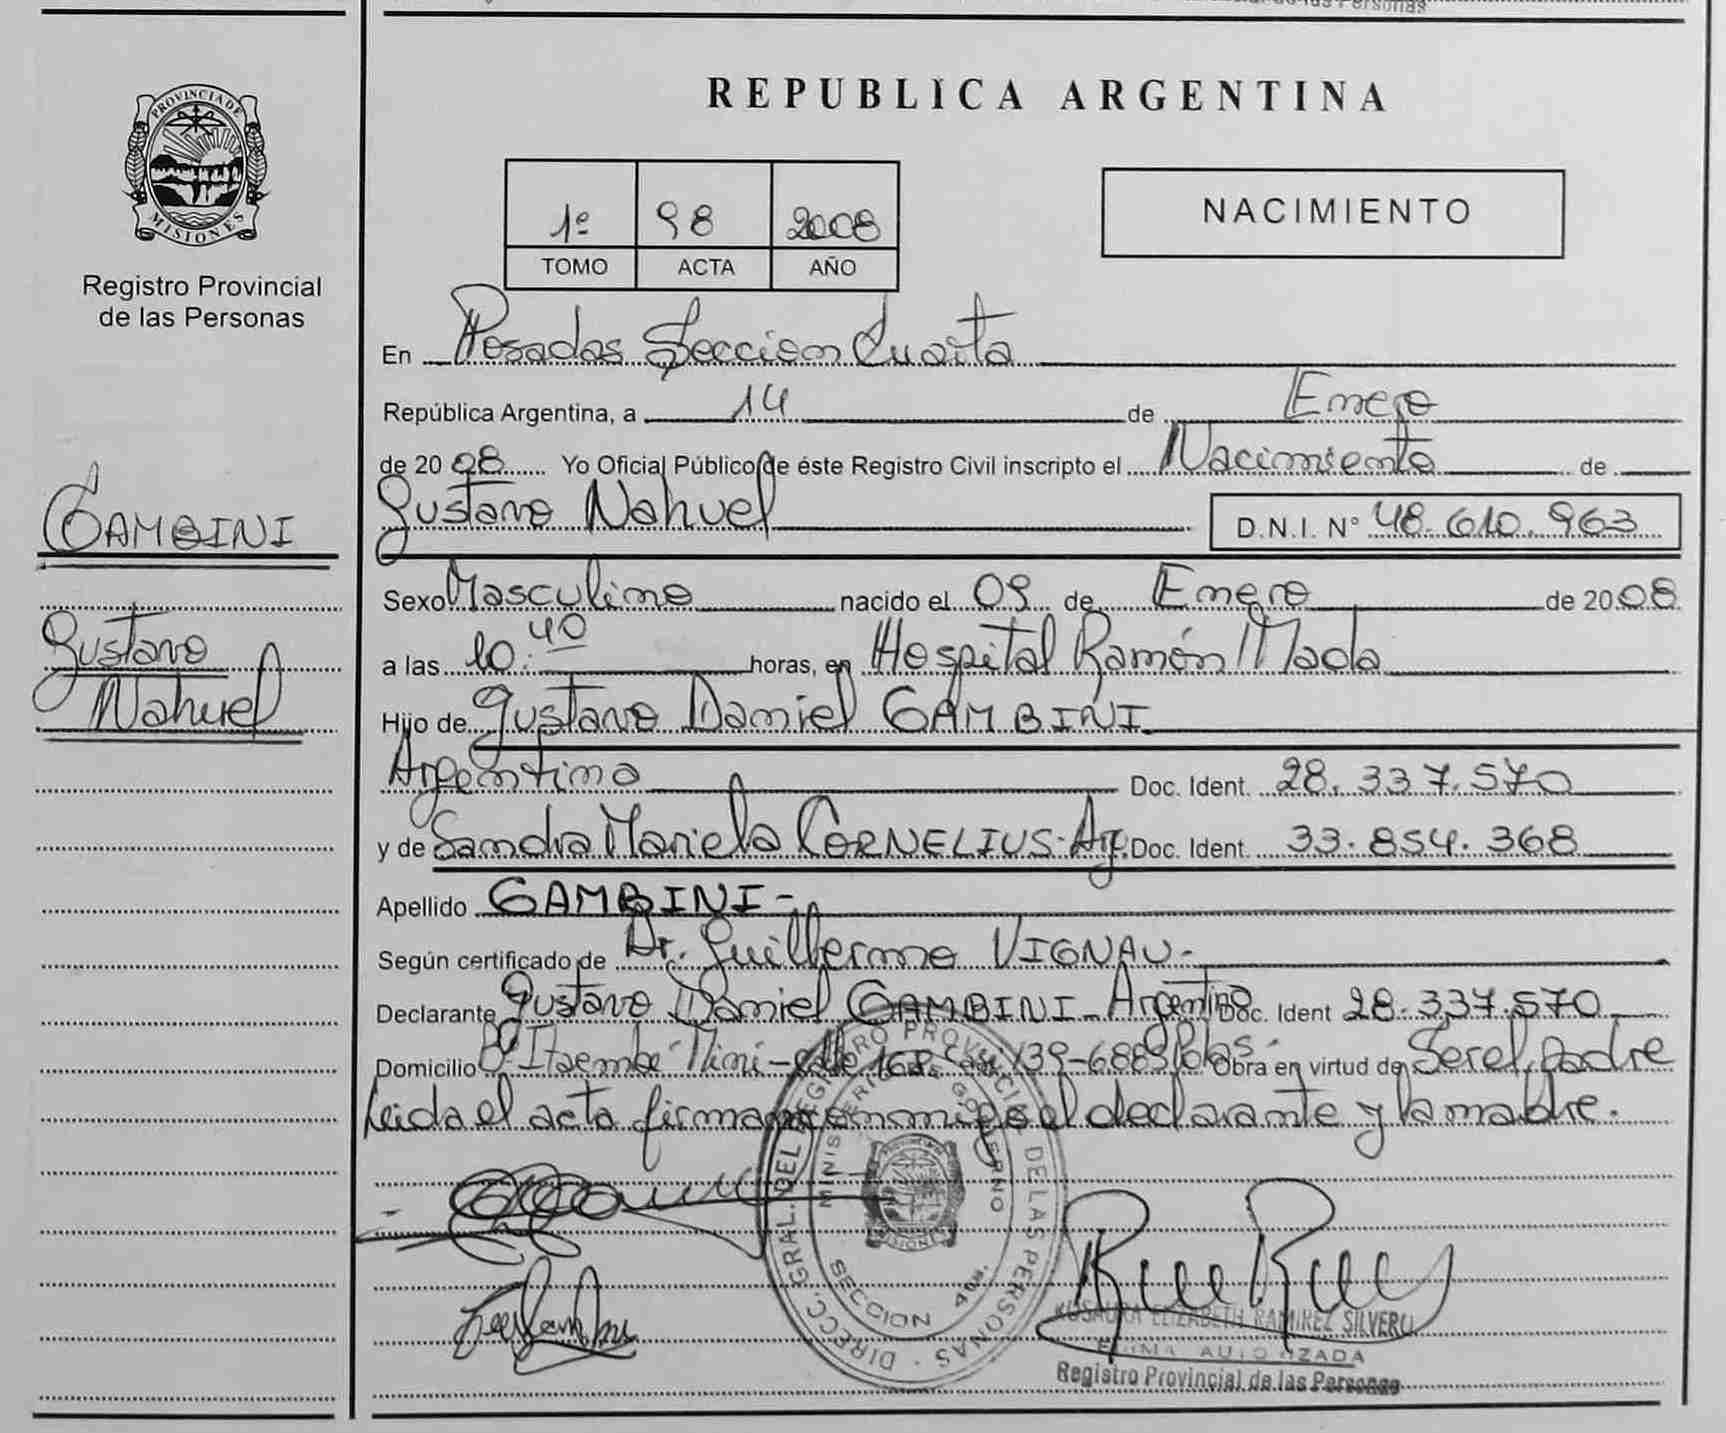 de las Personas
PROVINCIA DE
MISIONES
Registro Provincial
de las Personas
GAMBINI
Gustavo
Nahuel
REPUBLICA ARGENTINA
1º 98 2008
TOMO ACTA AÑO
NACIMIENTO
En Posadas Seccion Cuarta
República Argentina, a 14 de Enero
de 20 08 Yo Oficial Público de éste Registro Civil inscripto el Nacimiento de
Gustavo Nahuel D.N.I. N° 48.610.963
Sexo Masculino nacido el 09 de Enero de 20 08
a las 10:40 horas, en Hospital Ramón Mada
Hijo de Gustavo Daniel GAMBINI
Argentino Doc. Ident. 28.337.570
y de Sandra Mariela CORNELIUS-Arg. Doc. Ident. 33.854.368
Apellido GAMBINI-
Según certificado de Dr. Guillermo VIGNAU-
Declarante Gustavo Daniel GAMBINI-Argentino Doc. Ident 28.337.570
Domicilio Bº Itaembé Mini-calle 168 139-6885 Pdas- Obra en virtud de Ser el padre
Leida el acta firman conmigo el declarante y la madre.
DIRECC. GRAL. DEL REGISTRO PROVINCIAL DE LAS PERSONAS
MINISTERIO DE GOBIERNO
MISIONES
SECCION 4ta.
ROSAURA ELIZABETH RAMIREZ SILVERO
FIRMA AUTORIZADA
Registro Provincial de las Personas